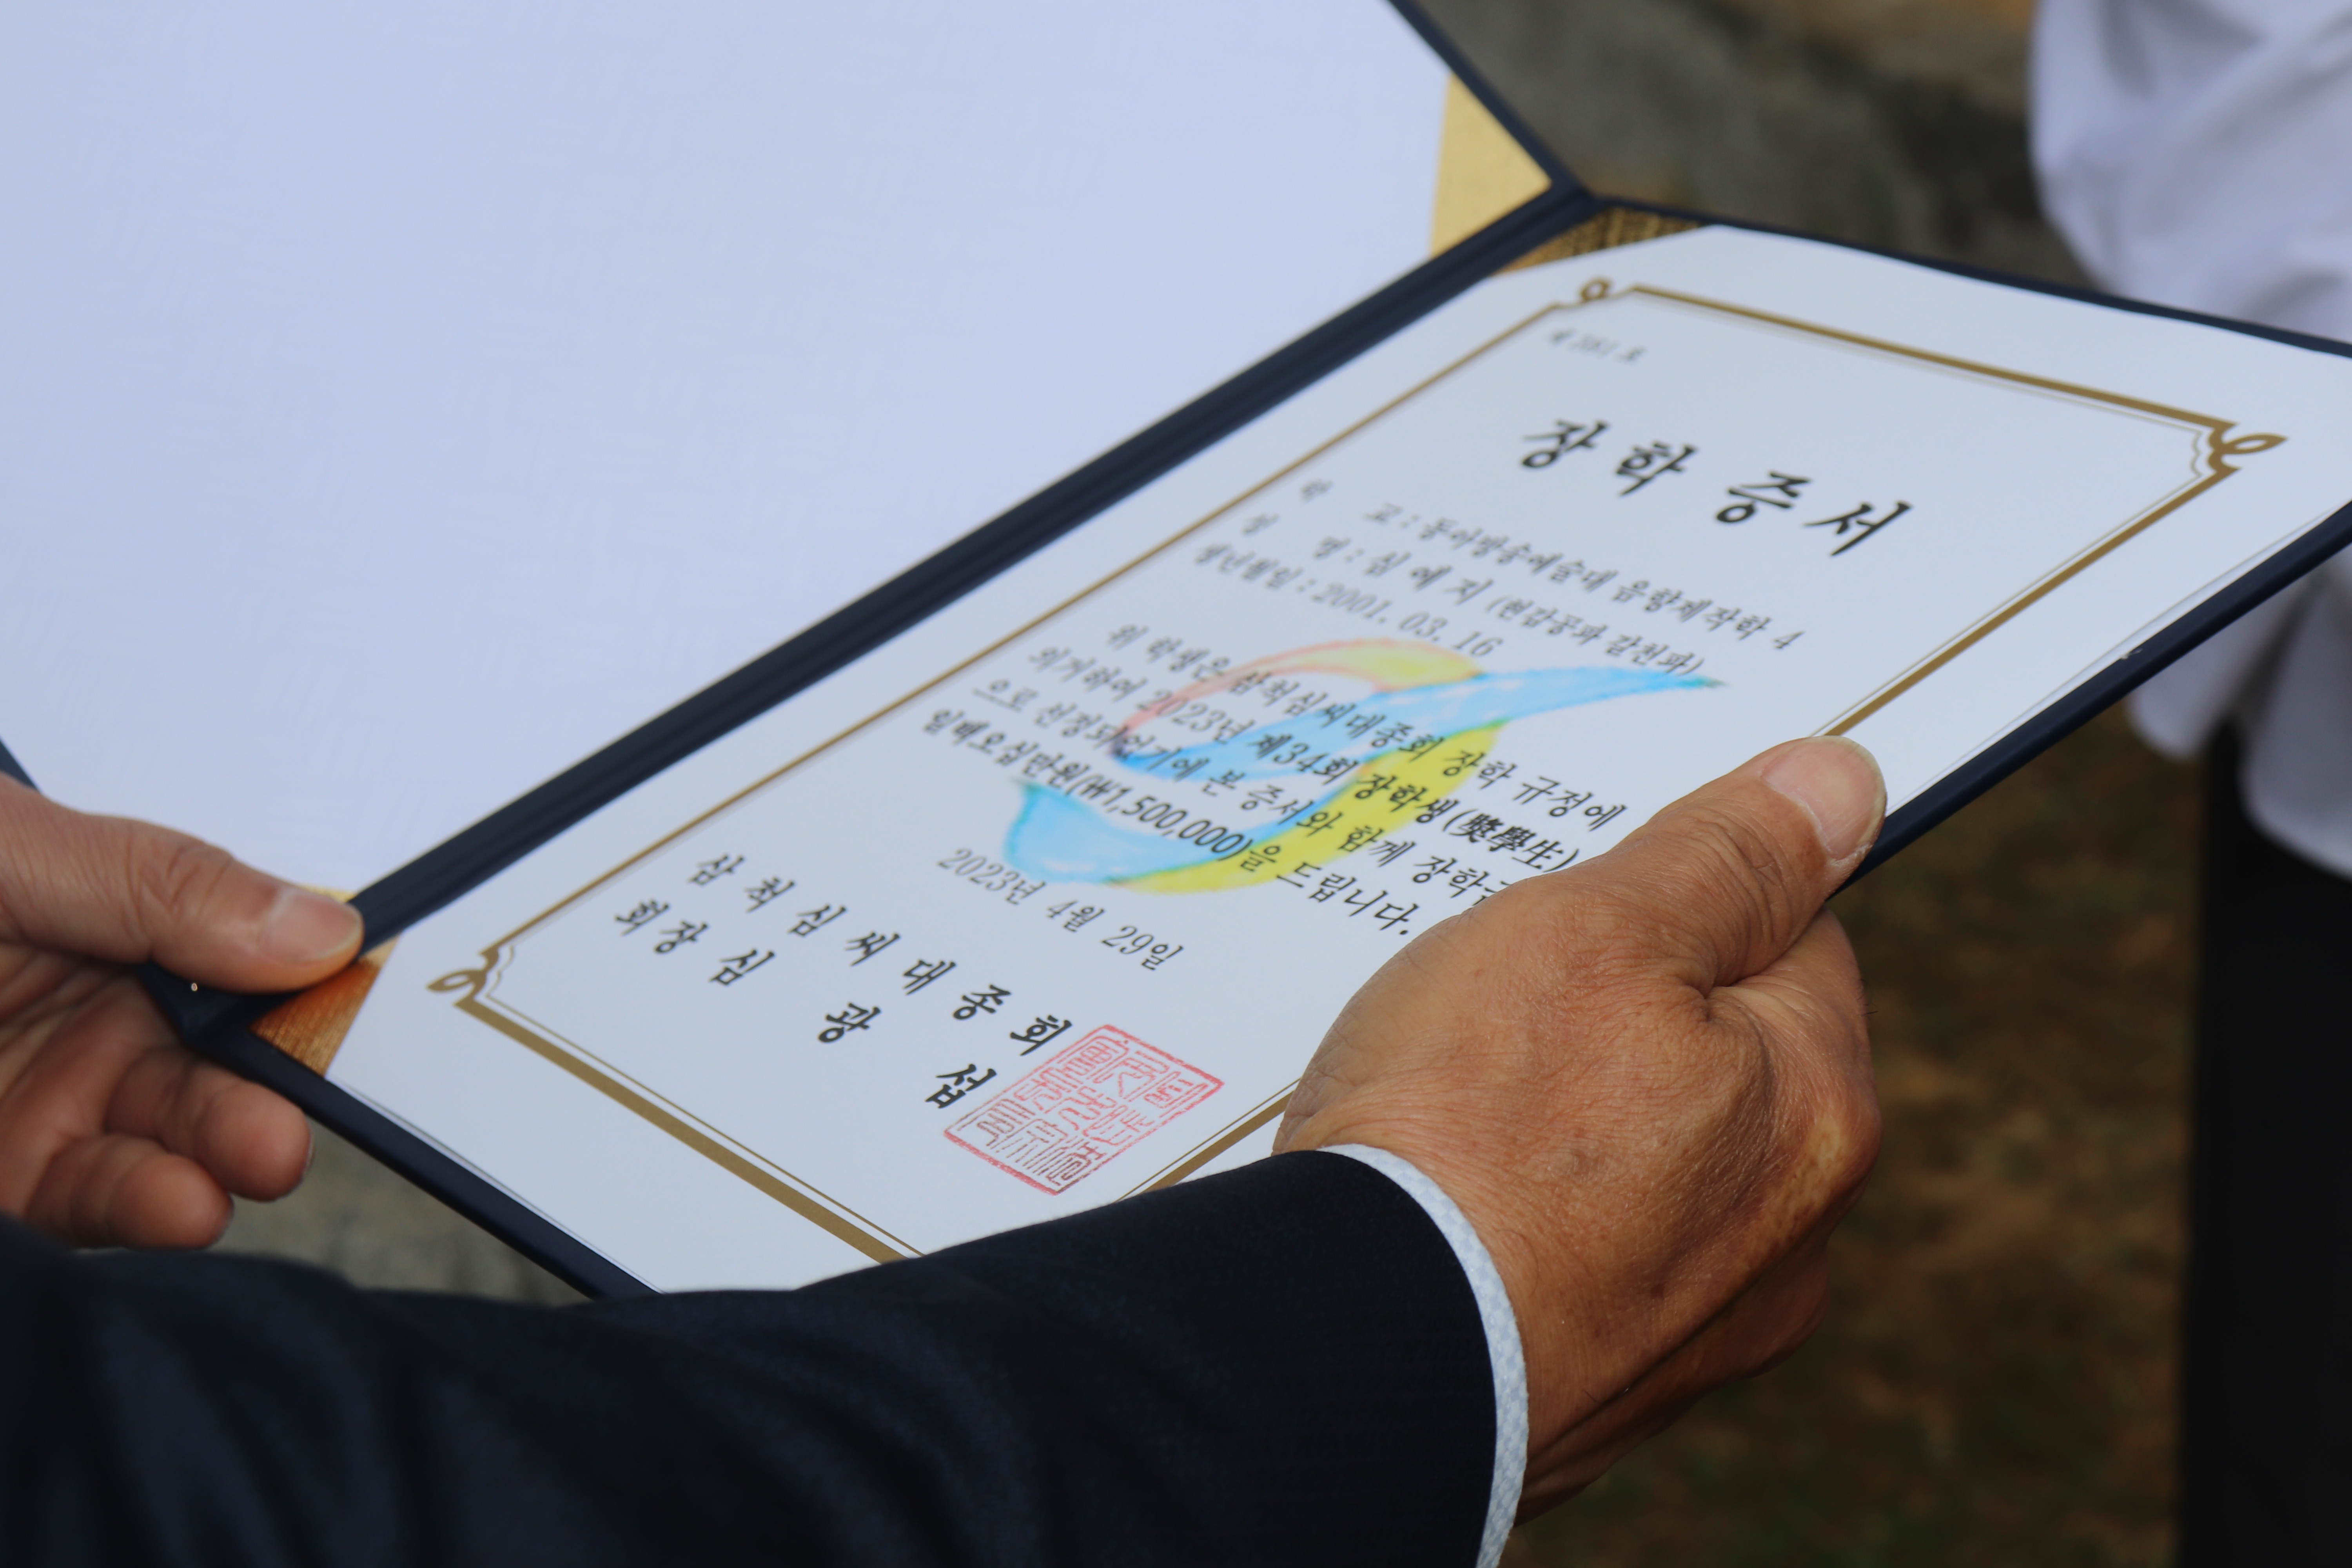 장학증서
학 교 : 동아방송예술대 음향제작학 4
성 명 : 심 예 지 (현감공파 갈천파)
생년월일 : 2001. 03. 16
위 학생은 삼척심씨대종회 장학 규정에
의거하여 2023년 제34회 장학생(奬學生)
으로 선정되었기에 본 증서와 함께 장학
일백오십만원(₩1,500,000)을 드립니다.
2023년 4월 29일
삼 척 심 씨 대 종 회
회 장 심 광 섭